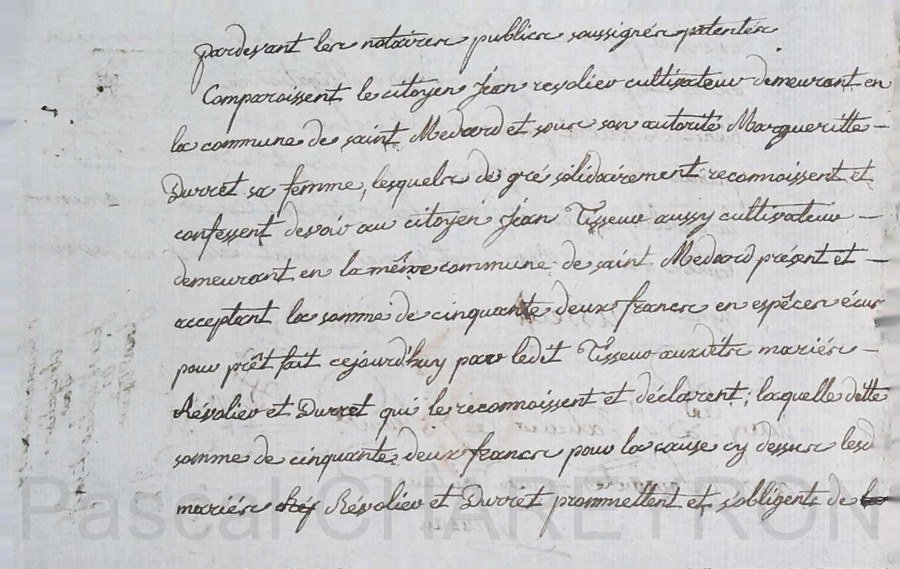 pardevant les notaires publics soussignés patentés
Comparoissent le citoyen Jean revolier cultivateur demeurant en
la commune de saint Medard et sous son autorité Margueritte –
Durret sa femme, lesquels de gré solidairement reconnoissent et
confessent devoir au citoyen Jean Tisseur aussy cultivateur –
demeurant en la même commune de saint Medard présent et –
acceptant la somme de cinquante deux francs en espéces écus
pour prêt fait cejourd'huy par ledit Tisseur auxdits mariés –
Révolier et Durret qui le reconnoissent et déclarent; laquelle ditte
somme de cinquante deux francs pour la cause cy dessus lesd
mariés Rév Révolier et Durret prommettent et s'obligent de
Pascal CHAREYRON